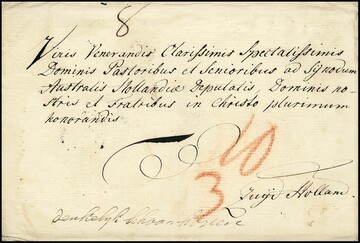 8
Viris Venerandis, Clarissimis Spectatissimis
Dominis Pastoribus et Senioribus ad Synodum
Australis Hollandiæ Deputatis, Dominis no-
stris et Fratribus in Christo plurimum
honorandis
10
3
Zuijd Holland
denkelijk Schoonhoven